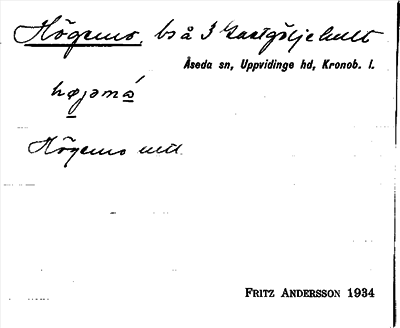 Högemo, bs å 3 Lastgöljehult
Åseda sn, Uppvidinge hd, Kronob. l.
højəmå
Högemo mtl.
FRITZ ANDERSSON 1934